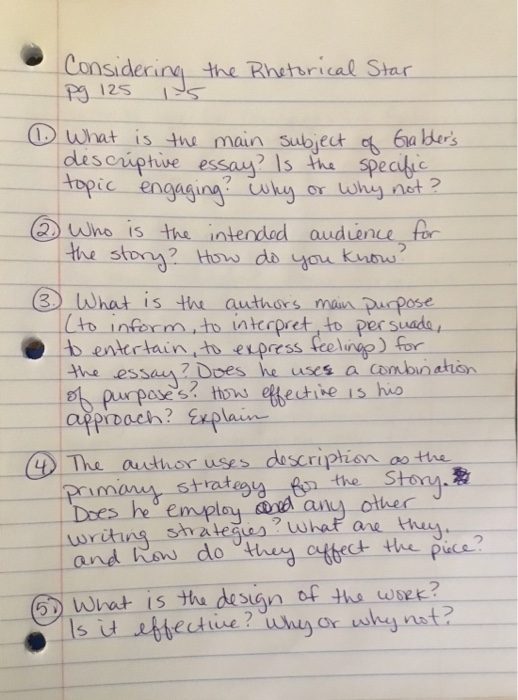 Considering the Rhetorical Star
pg 125 1-5
1. What is the main subject of Galder's
descriptive essay? Is the specific
topic engaging? Why or why not?
2. Who is the intended audience for
the story? How do you know?
3. What is the author's main purpose
(to inform, to interpret, to persuade,
to entertain, to express feelings) for
the essay? Does he uses a combination
of purposes? How effective is his
approach? Explain
4. The author uses description as the
primary strategy for the story.
Does he employ any other
writing strategies? What are they,
and how do they affect the piece?
5. What is the design of the work?
Is it effective? Why or why not?